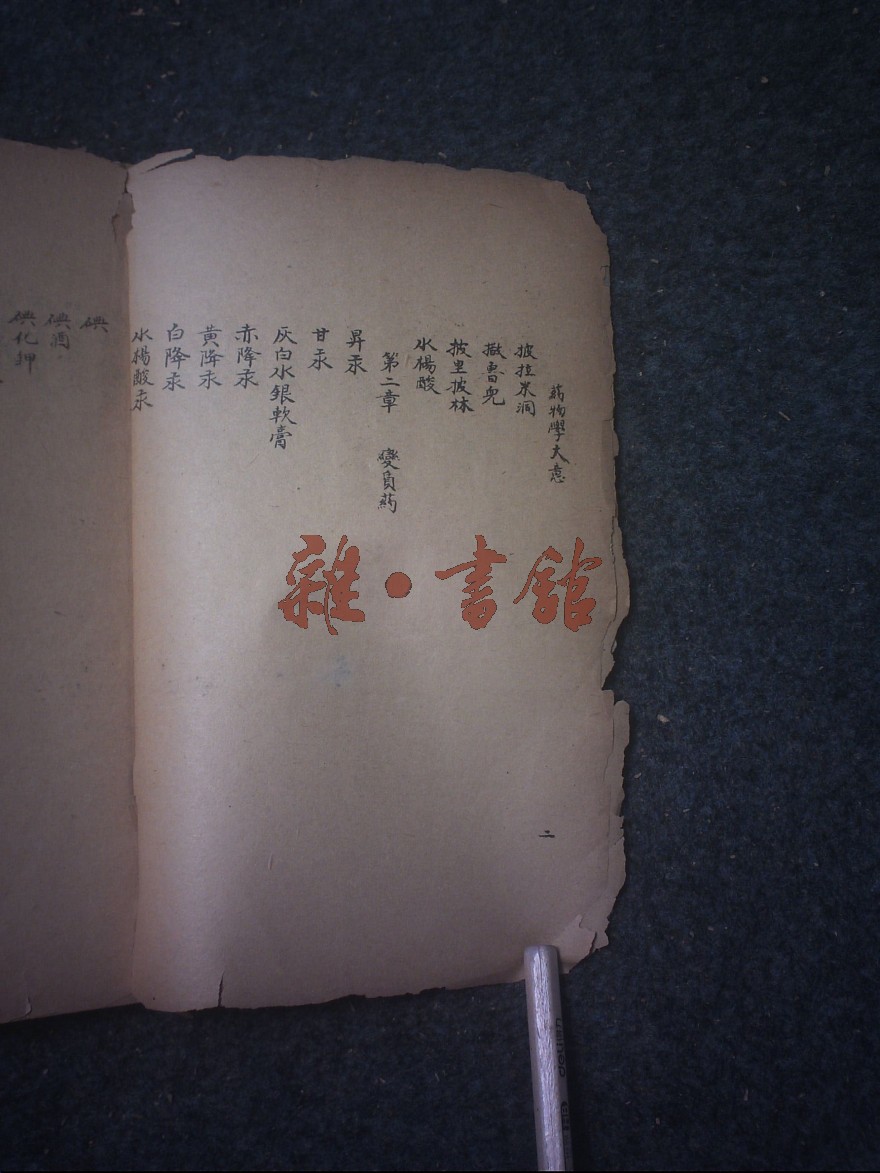 药物學大意
披拉米洞
撒魯兒
披里披林
水楊酸
第二章 變質药
昇汞
甘汞
灰白水銀軟膏
赤降汞
黄降汞
白降汞
水楊酸汞
碘
碘酒
碘化鉀
二
雜·書館